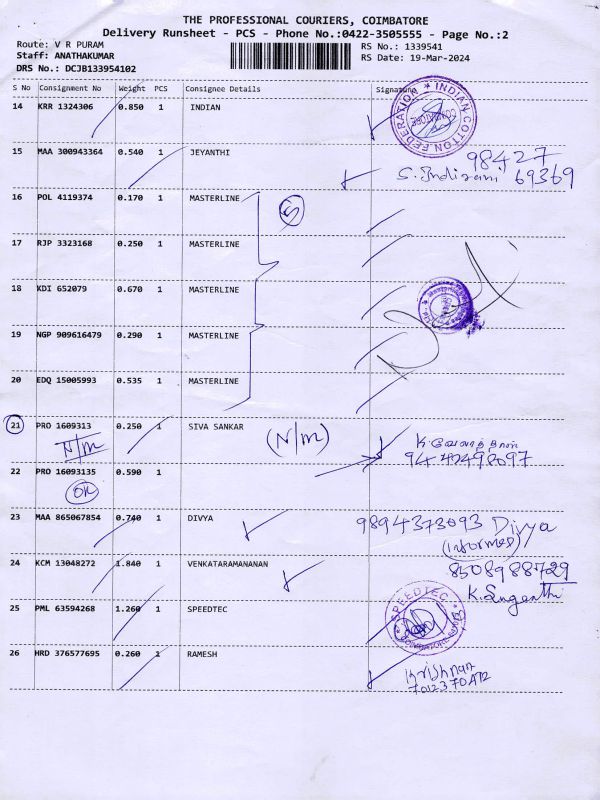 THE PROFESSIONAL COURIERS, COIMBATORE
Delivery Runsheet - PCS - Phone No.:0422-3505555 - Page No.:2
Route: V R PURAM
RS No.: 1339541
Staff: ANATHAKUMAR
RS Date: 19-Mar-2024
DRS No.: DCJB133954102
S No Consignment No Weight PCS Consignee Details Signature
14 KRR 1324306 0.850 1 INDIAN
INDIAN COTTON FEDERATION
COIMBATORE
15 MAA 300943364 0.540 1 JEYANTHI
98427
S. Indirani 69369
16 POL 4119374 0.170 1 MASTERLINE
17 RJP 3323168 0.250 1 MASTERLINE
18 KDI 652079 0.670 1 MASTERLINE
19 NGP 909616479 0.290 1 MASTERLINE
20 EDQ 15005993 0.535 1 MASTERLINE
21 PRO 1609313 0.250 1 SIVA SANKAR
N/M
(N/M)
22 PRO 16093135 0.590 1
OK
23 MAA 865067854 0.740 1 DIVYA
9894373093 Divya
(informed)
24 KCM 13048272 1.840 1 VENKATARAMANANAN
8508988729
K. Sugenthi
25 PML 63594268 1.260 1 SPEEDTEC
SPEEDTEC
26 HRD 376577695 0.260 1 RAMESH
Krishnan